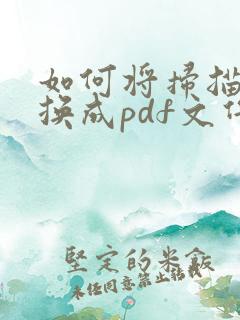 如何将扫描
换成pdf文
坚定的米飯
未任同意禁止转载